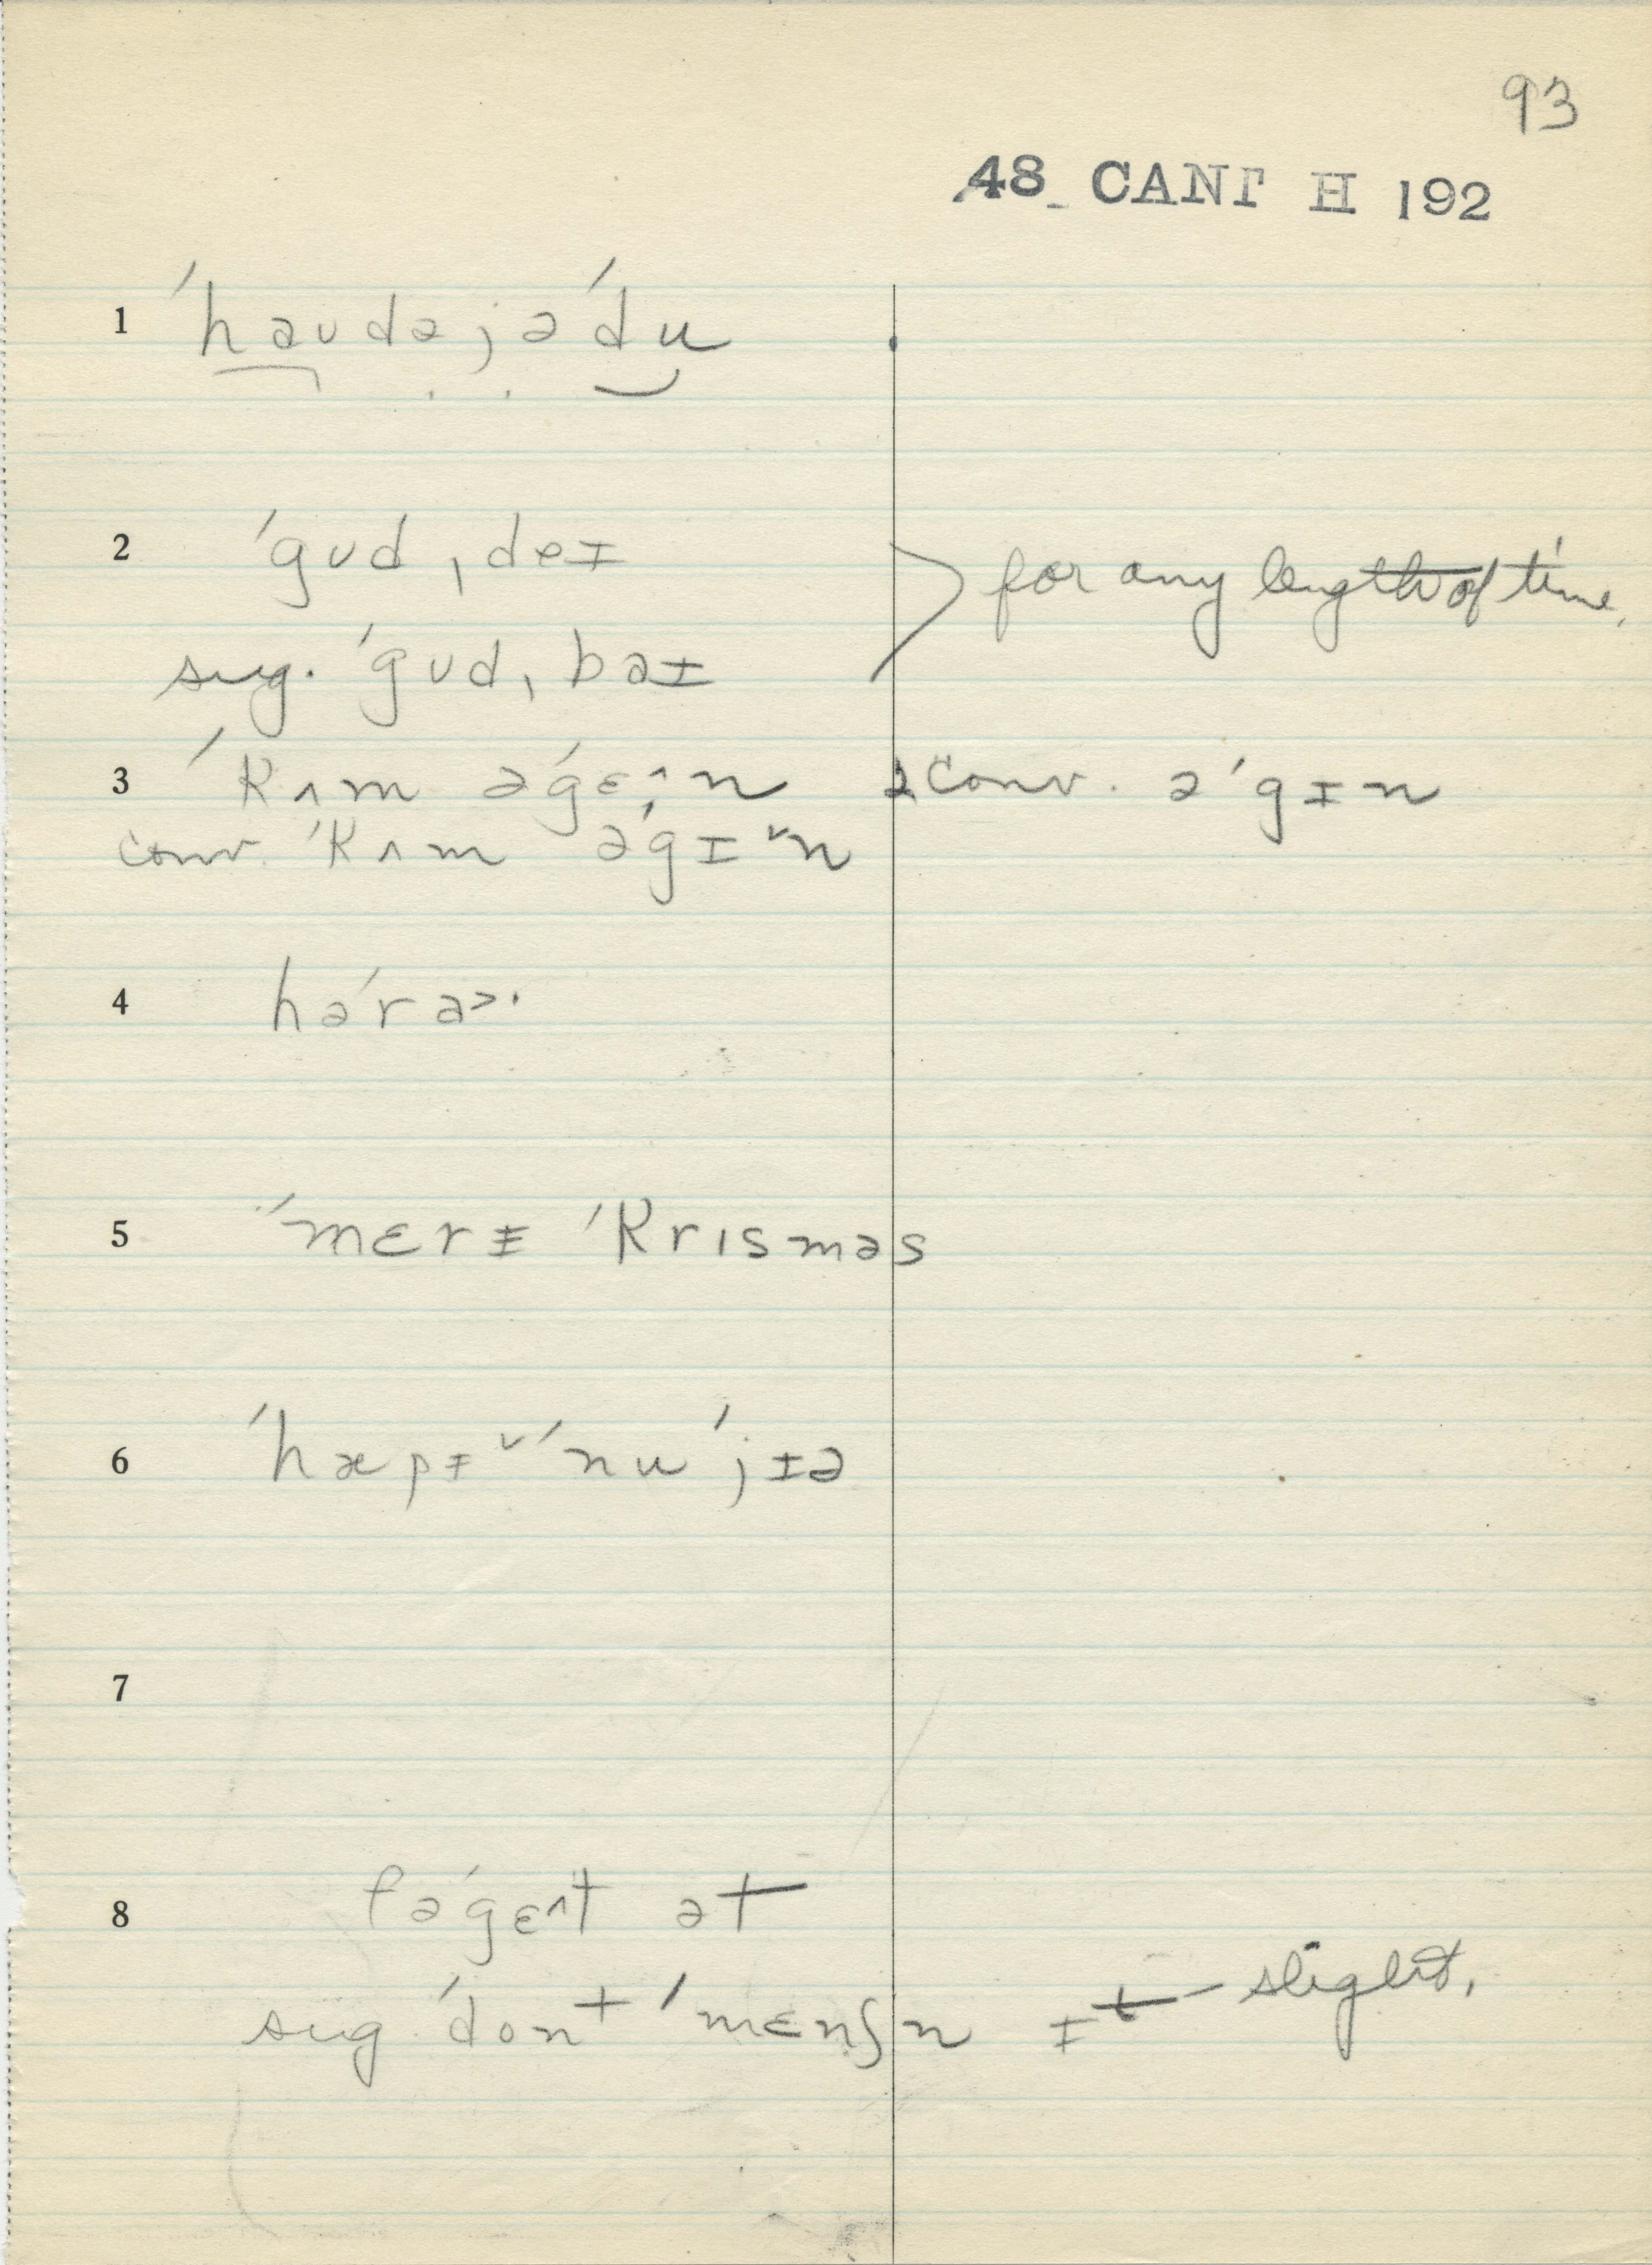 93
48 CANT H 192
1 ˈhaʊdəjəˈdu
2 ˈgʊd ˌdeɪ
for any length of time,
sug. ˈgʊd ˌbaɪ
3 ˈkʌm əˈgɛ^n 2 conv. əˈgɪn
conv. ˈkʌm əˈgɪˇn
4 həˈra>·
5 ˈmɛrɪ ˈkrɪsməs
6 ˈhæpɪˇ ˈnu ˈjɪə
7
8 fəˈgɛ^t ət
sug. ˈdont ˈmɛnʃn ɪt – slight,